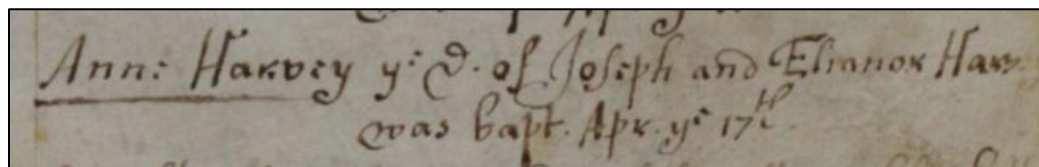 Anne Harvey yᵉ d. of Joseph and Elianor Harv:
was bapt. Apr. yᵉ 17ᵗʰ.